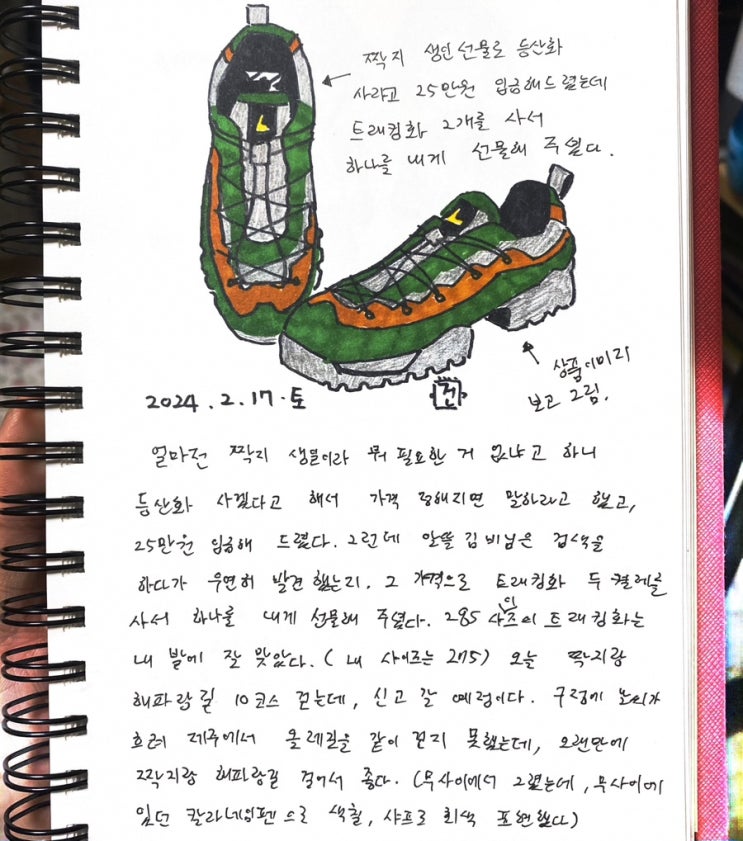 짝지 생일선물로 등산화
사라고 25만원 입금해드렸는데
트래킹화 2개를 사서
하나를 내게 선물해 주셨다.
상품이미지
보고 그림.
2024.2.17.토
건
얼마전 짝지 생일이라 뭐 필요한 거 없냐고 하니
등산화 사겠다고 해서 가격 정해지면 말하라고 했고,
25만원 입금해 드렸다. 그런데 알뜰 김비님은 검색을
하다가 우연히 발견했는지. 그 가격으로 트래킹화 두 켤레를
사서 하나를 내게 선물해 주셨다. 285 사이즈의 트래킹화는
내 발에 잘 맞았다. (내 사이즈는 275) 오늘 짝지랑
해파랑길 10코스 걷는데, 신고 갈 예정이다.
흐려 제주에서 올레길을 같이 걷지 못했는데, 오랜만에
짝지랑 해파랑길 걸어서 좋다. (무사이에서 그렸는데, 무사이에
있던 칼라네임펜으로 색칠, 샤프로 회색 표현했다)